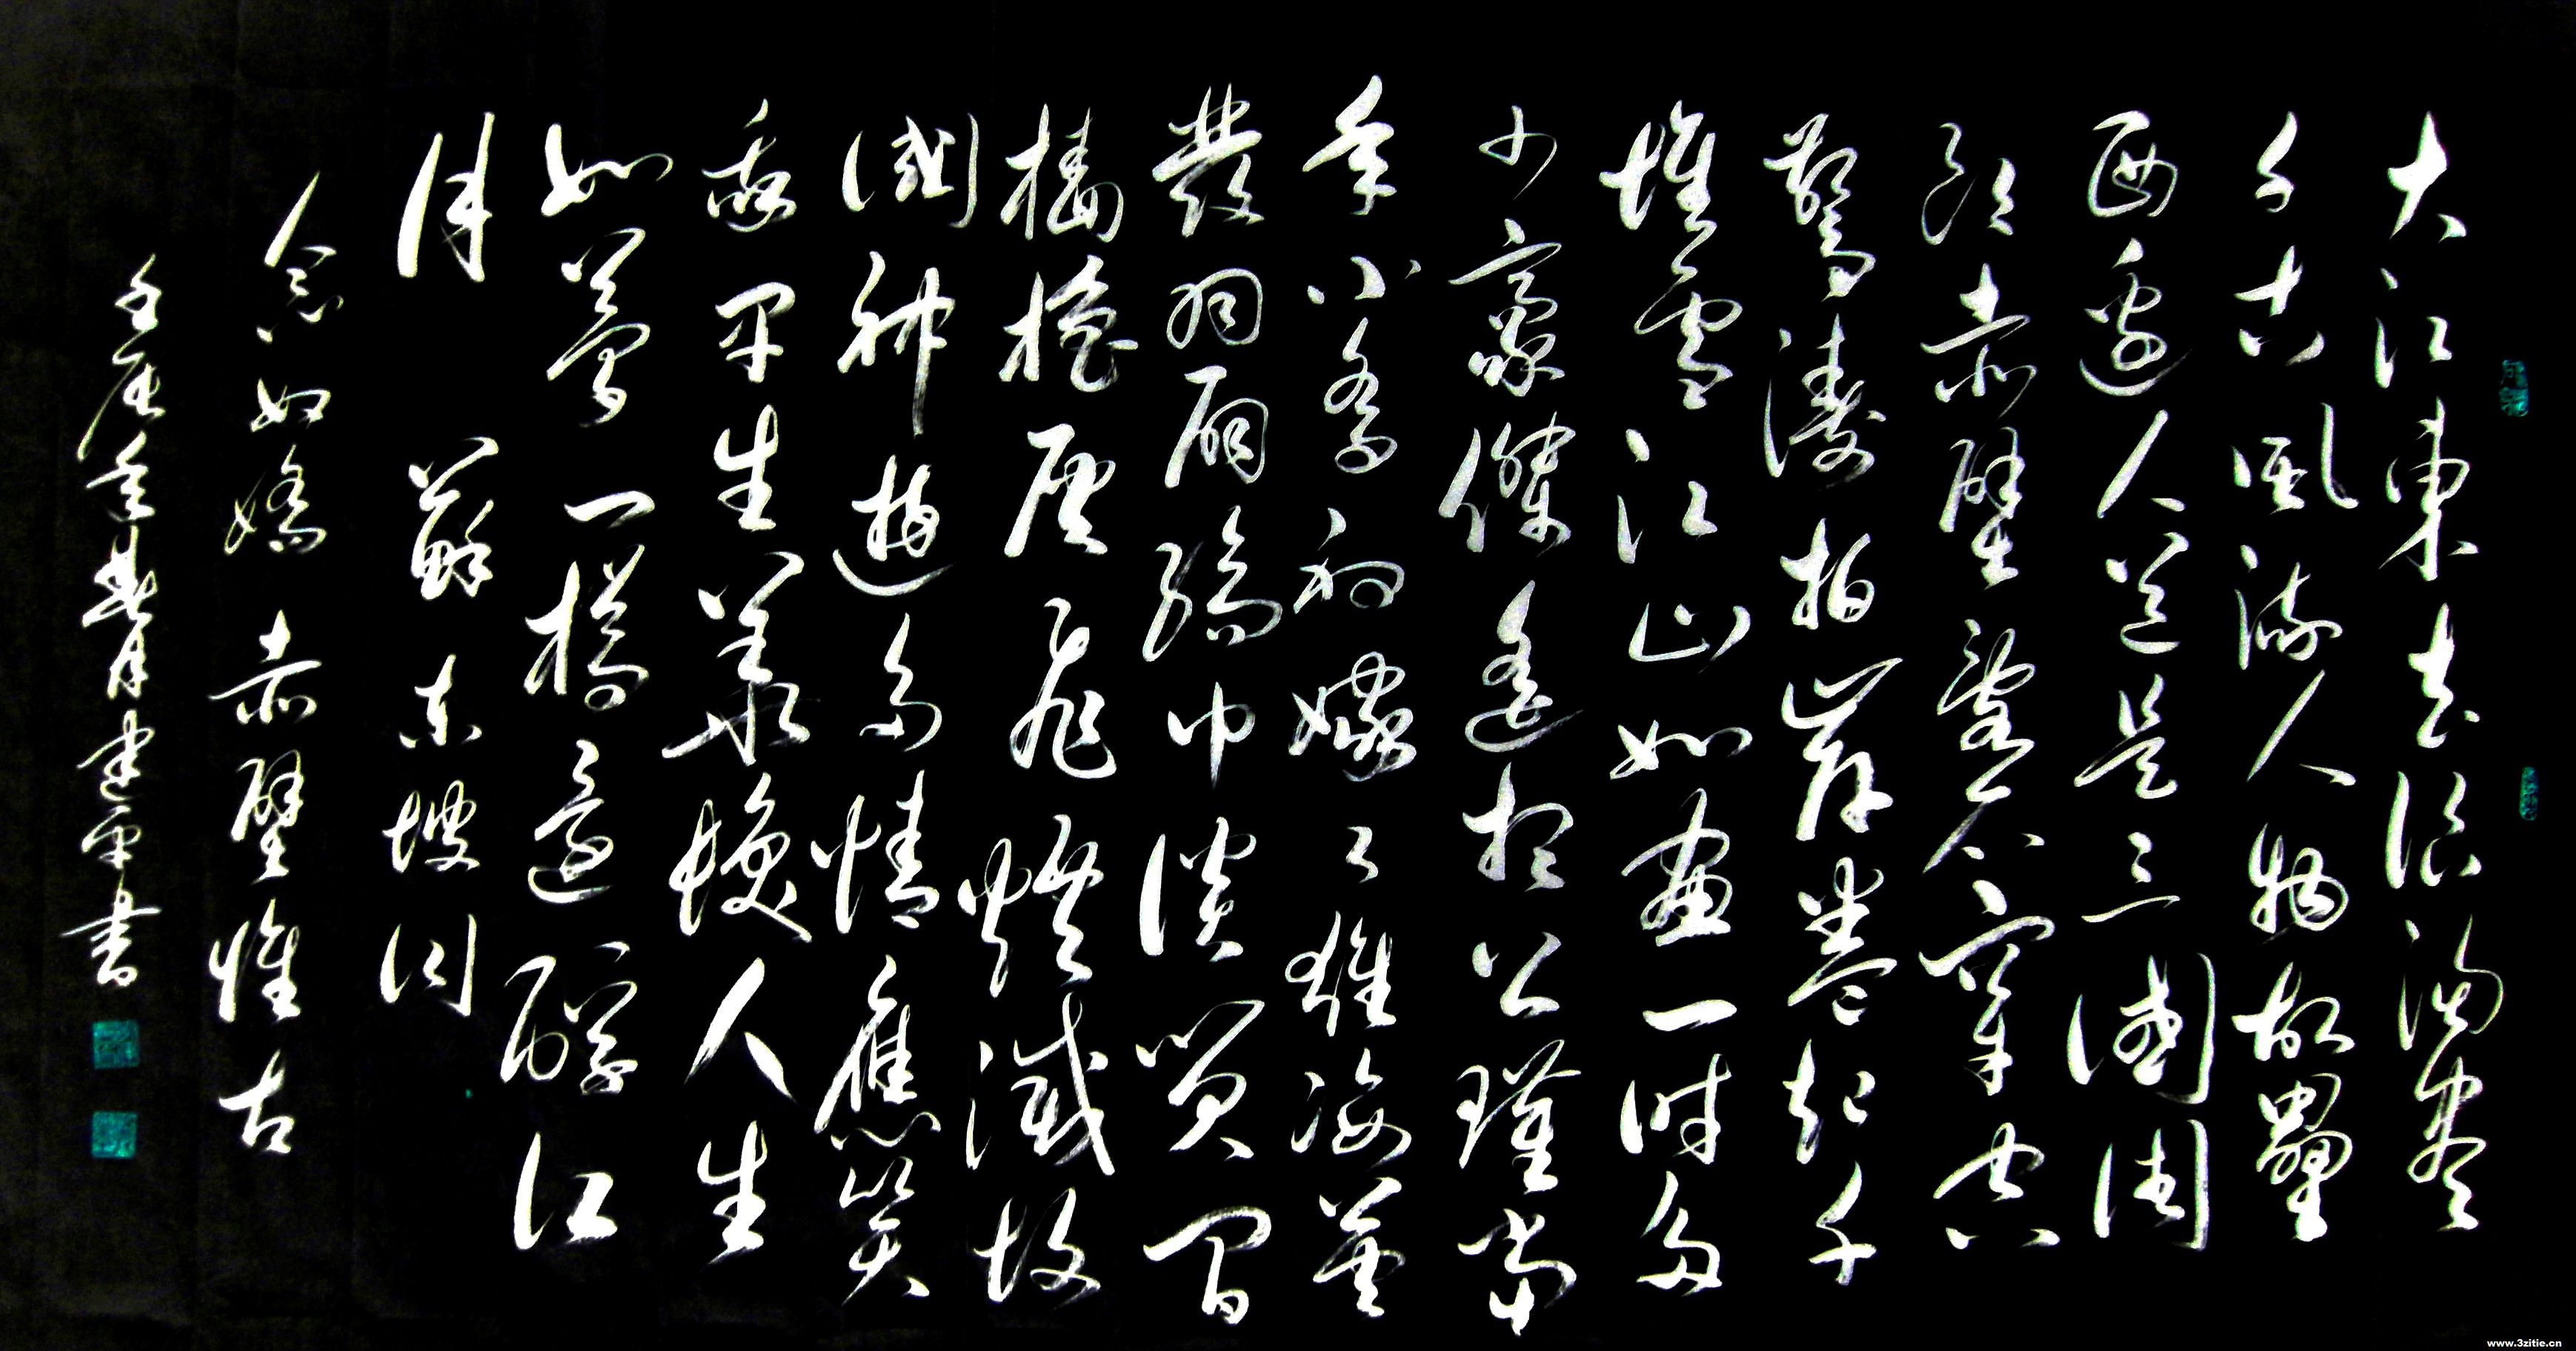 大江東去浪淘盡
千古風流人物故壘
西邊人道是三國周
郎赤壁亂石穿空
驚濤拍岸卷起千
堆雪江山如畫一時多
少豪傑遙想公瑾當
年小喬初嫁了雄姿英
發羽扇綸巾談笑間
檣櫓灰飛煙滅故
國神遊多情應笑
我平生華人生
如夢一樽還酹江
月 蘇東坡詞
念奴嬌 赤壁懷古
壬辰年春月建平書
www.3zitie.cn